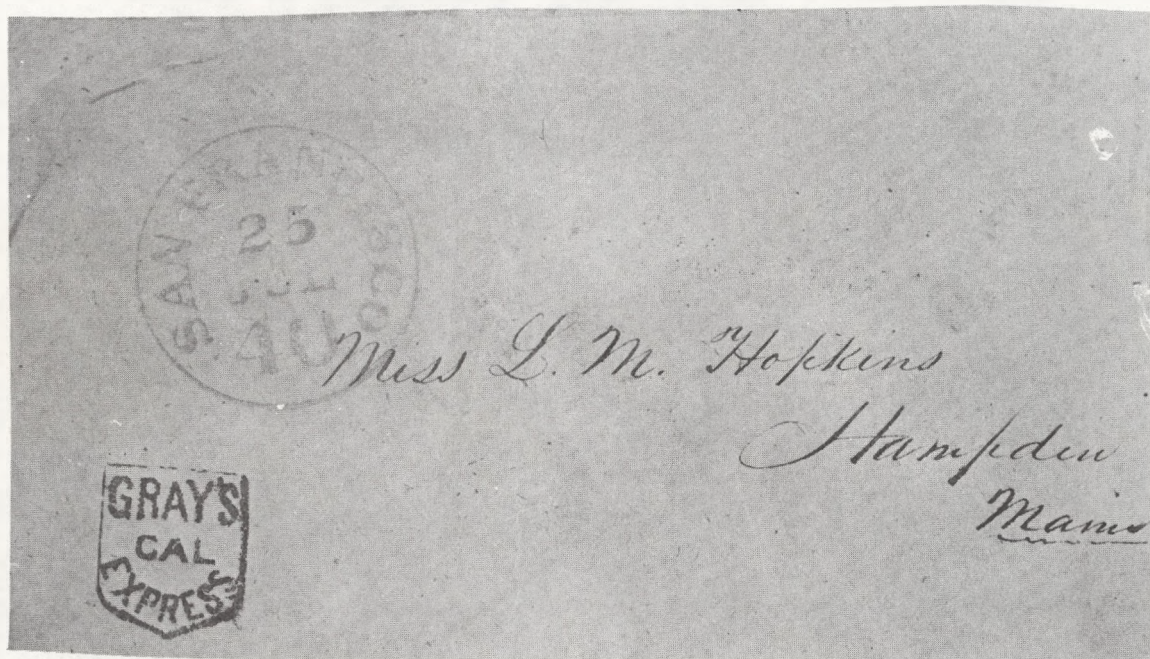 SAN FRANCISCO
25
40
Miss L. M. Hopkins
Hampden
Maine
GRAY'S
CAL
EXPRESS